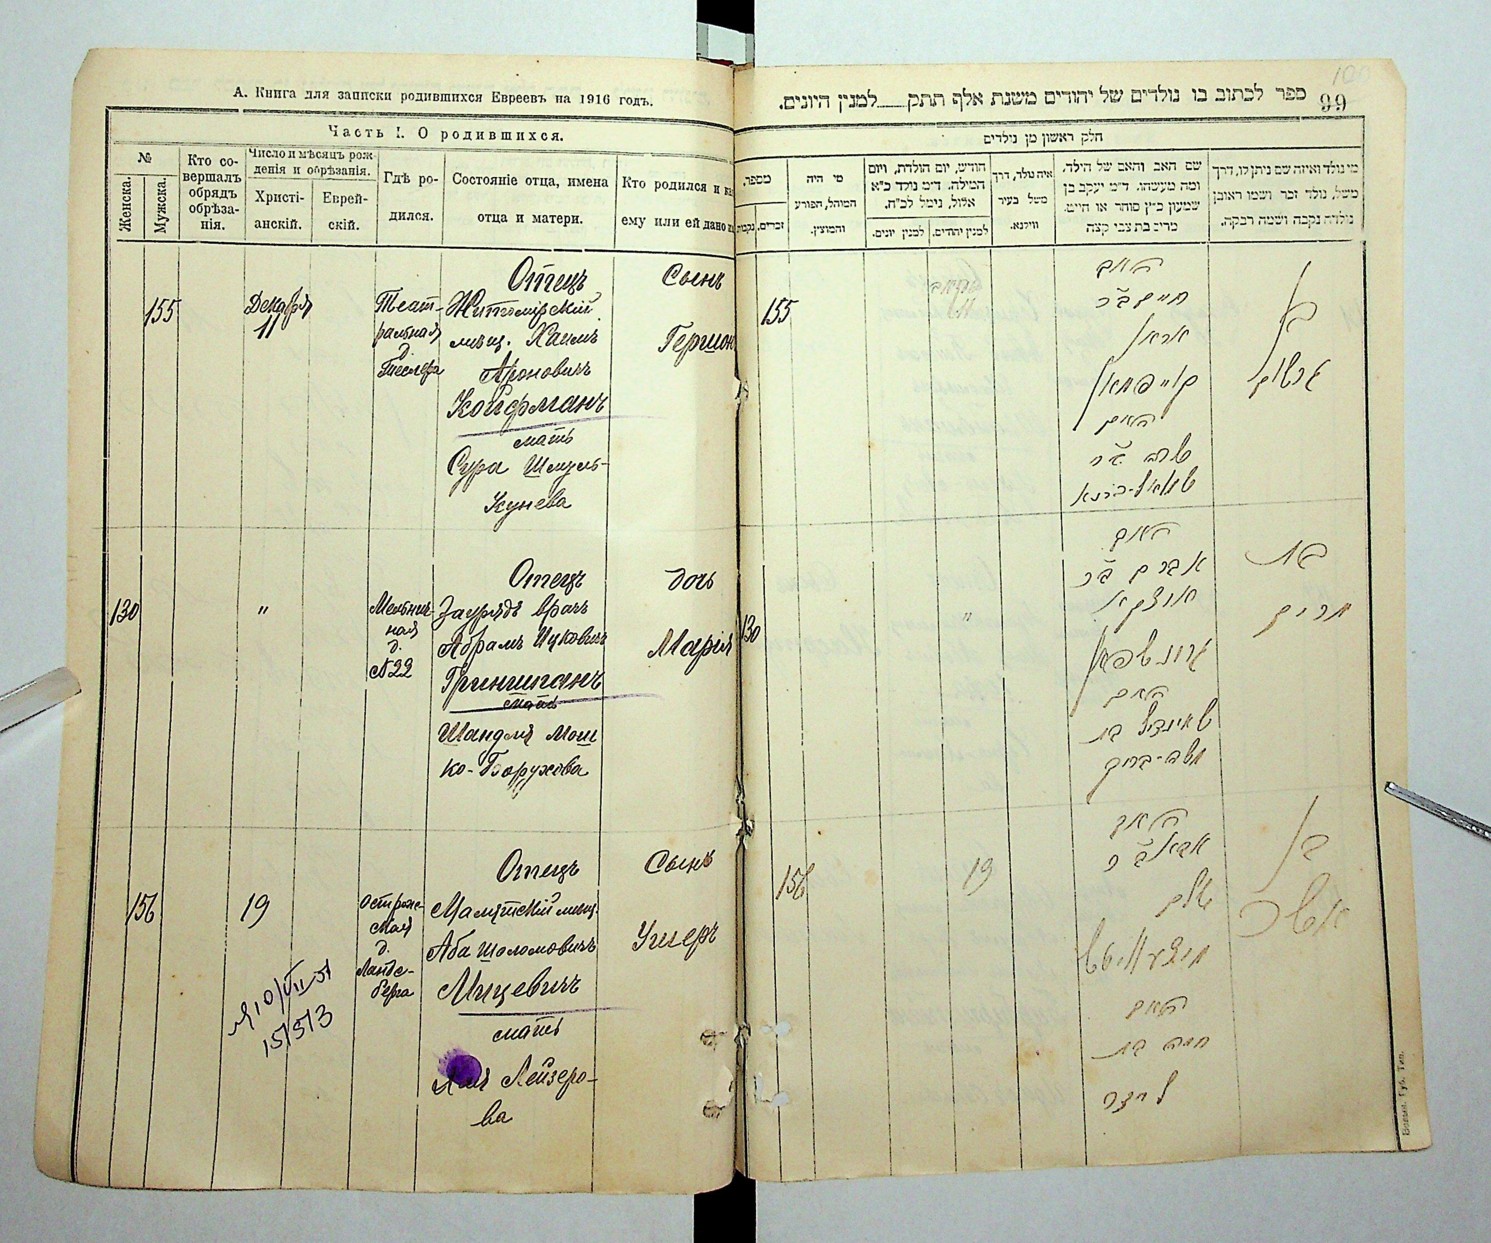 А. Книга для записки родившихся Евреевъ на 1916 годъ.
Часть I. О родившихся.
№
Женска.
Мужска.
Кто совершалъ обрядъ обрѣзанія.
Число и мѣсяцъ рожденія и обрѣзанія.
Христіанскій.
Еврейскій.
Гдѣ родился.
Состояніе отца, имена отца и матери.
Кто родился и
ему или ей дано
155
Декабря
11
Театральная
д.
Отецъ
Житомірскій
мѣщ. Хаимъ
Ароновичъ
Койфманъ
мать
Сура Шмуль-
Кунева
Сынъ
Гершон
130
"
Мельнич-
ная
д.
№22
Отецъ
Заурядъ врачъ
Абрамъ Ицковичъ
Гриншпанъ
мать
Шандля Мош
ко-Борухова
дочь
Марія
156
19
Острож-
ская
д.
Ландс-
берга
Отецъ
мѣщ.
Аба Шоломовичъ
Мицевичъ
мать
Лейзеро-
ва
Сынъ
Ушеръ
15/313
100
99
ספר לכתוב בו נולדים של יהודים משנת אלף תתק למנין היונים.
חלק ראשון מן נולדים
מספר
נקבות
זכרים
מי היה
המוהל, הפורע
והמוצץ.
חודש, יום הולדת, ויום
המילה. ד״מ נולד כ״א
אלול, נימל לכ״ח.
למנין יונים.
למנין יהודים.
איה נולד, דרך
משל בעיר
ווילנא.
שם האב והאב של הילד,
ומה מעשהו. ד״מ יעקב בן
שמעון כ״ץ סוחר או חייט.
מרים בת צבי קצה
מי נולד ואיזה שם ניתן לו, דרך
משל, נולד זכר ושמו ראובן
נולדה נקבה ושמה רבקה.
155
האב
חיים ב״ר
קויפמאן
האם
שרה ב״ר
בן
גרשון
130
"
האב
אברם ב״ר
גרונשפאן
האם
שיינדל בת
משה-ברוך
בת
מרים
156
19
האב
אבא ב״ר
שלם
האם
חיה בת
בן
אשר
Волын. Губ. Тип.